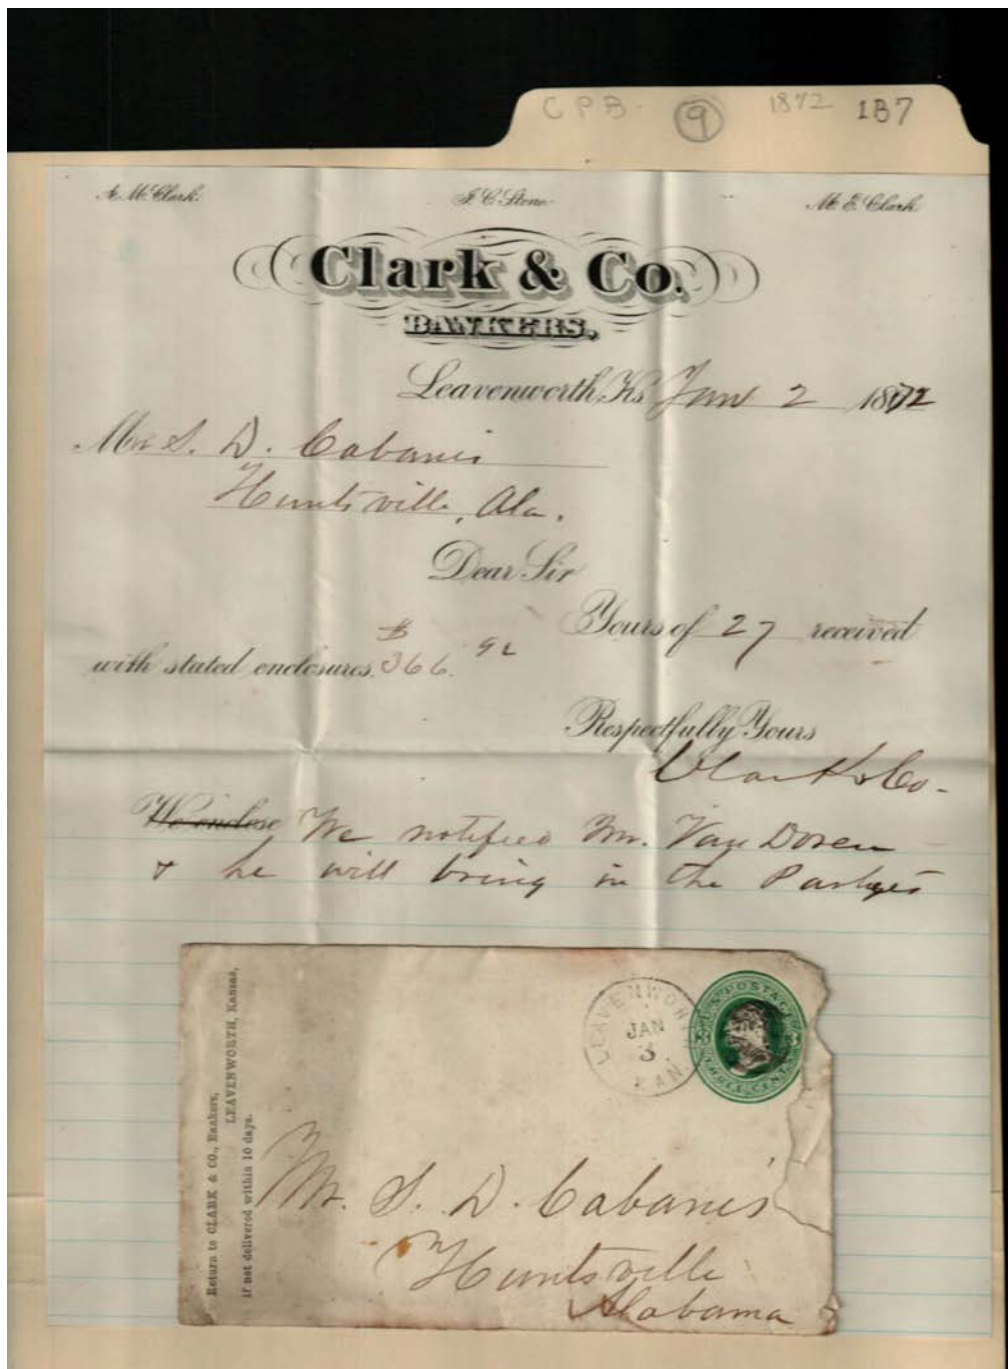 CPB. 9 1872 187
A. M. Clark. J. C. Stone. M. E. Clark.
Clark & Co.
BANKERS,
Leavenworth, Ks. Jany 2 1872
Mr S. D. Cabanis
Huntsville, Ala.
Dear Sir
Yours of 27 received
with stated enclosures. $366.92
Respectfully Yours
Clark & Co.
We enclose We notified Mr. Van Doren
& he will bring in the
Return to CLARK & CO., Bankers,
LEAVENWORTH, Kansas,
if not delivered within 10 days.
LEAVENWORTH KAN.
JAN
3
U.S. POSTAGE
THREE CENTS
3 3
Mr. S. D. Cabanis
Huntsville
Alabama